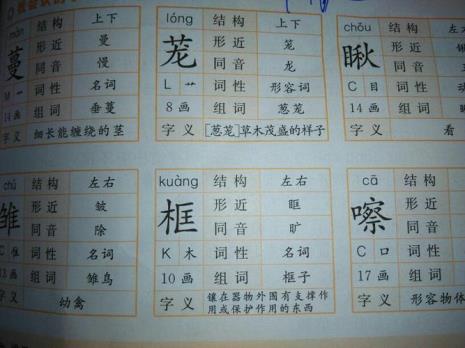 màn 结构 上下
蔓 形近 曼
同音 慢
M 艹 词性 名词
14画 组词 垂蔓
字义 细长能缠绕的茎
lóng 结构 上下
茏 形近 笼
同音 龙
L 艹 词性 形容词
8画 组词 葱茏
字义 [葱茏]草木茂盛的样子
chǒu 结构 左
瞅 形近
同音
C 目 词性
14画 组词
字义 看
chú 结构 左右
雏 形近 皱
同音 除
C 隹 词性 名词
13画 组词 雏鸟
字义 幼禽
kuàng 结构 左右
框 形近 眶
同音 旷
K 木 词性 名词
10画 组词 框子
字义 镶在器物外围有支撑作
用或保护作用的东西
cā 结构
嚓 形近
同音
C 口 词性
17画 组词
字义 形容物体